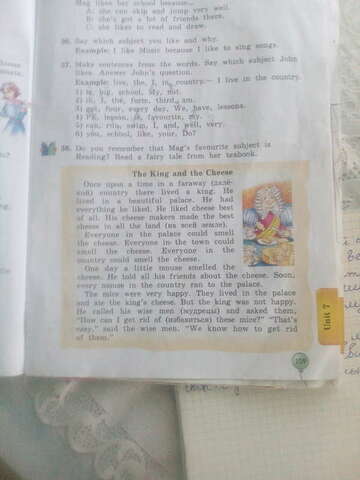 Mag likes her school because...
A: she can skip and jump very well.
B: she's got a lot of friends there.
C: she likes to read and draw.
36. Say which subject you like and why.
Example: I like Music because I like to sing songs.
37. Make sentences from the words. Say which subject John
likes. Answer John's question.
Example: live, the, I, in, country.— I live in the country.
1) is, big, school, My, not.
2) in, I, the, form, third, am.
3) got, four, every day, We, have, lessons.
4) PE, lesson, is, favourite, my.
5) run, can, swim, I, and, well, very.
6) you, school, like, your, Do?
38. Do you remember that Mag's favourite subject is
Reading? Read a fairy tale from her textbook.
The King and the Cheese
Once upon a time in a faraway (далё-
кой) country there lived a king. He
lived in a beautiful palace. He had
everything he liked. He liked cheese best
of all. His cheese makers made the best
cheese in all the land (на всей земле).
Everyone in the palace could smell
the cheese. Everyone in the town could
smell the cheese. Everyone in the
country could smell the cheese.
One day a little mouse smelled the
cheese. He told all his friends about the cheese. Soon,
every mouse in the country ran to the palace.
The mice were very happy. They lived in the palace
and ate the king's cheese. But the king was not happy.
He called his wise men (мудрецы) and asked them,
"How can I get rid of (избавиться) these mice?" "That's
easy," said the wise men. "We know how to get rid
of them."
Unit 7